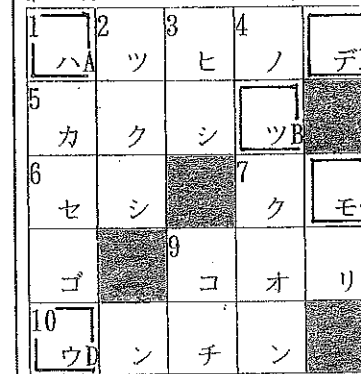 1 ハA 2 ツ 3 ヒ 4 ノ デ
5 カ ク シ ツB
6 セ シ 7 ク モ
ゴ 9 コ オ リ
10 ウD ン チ ン